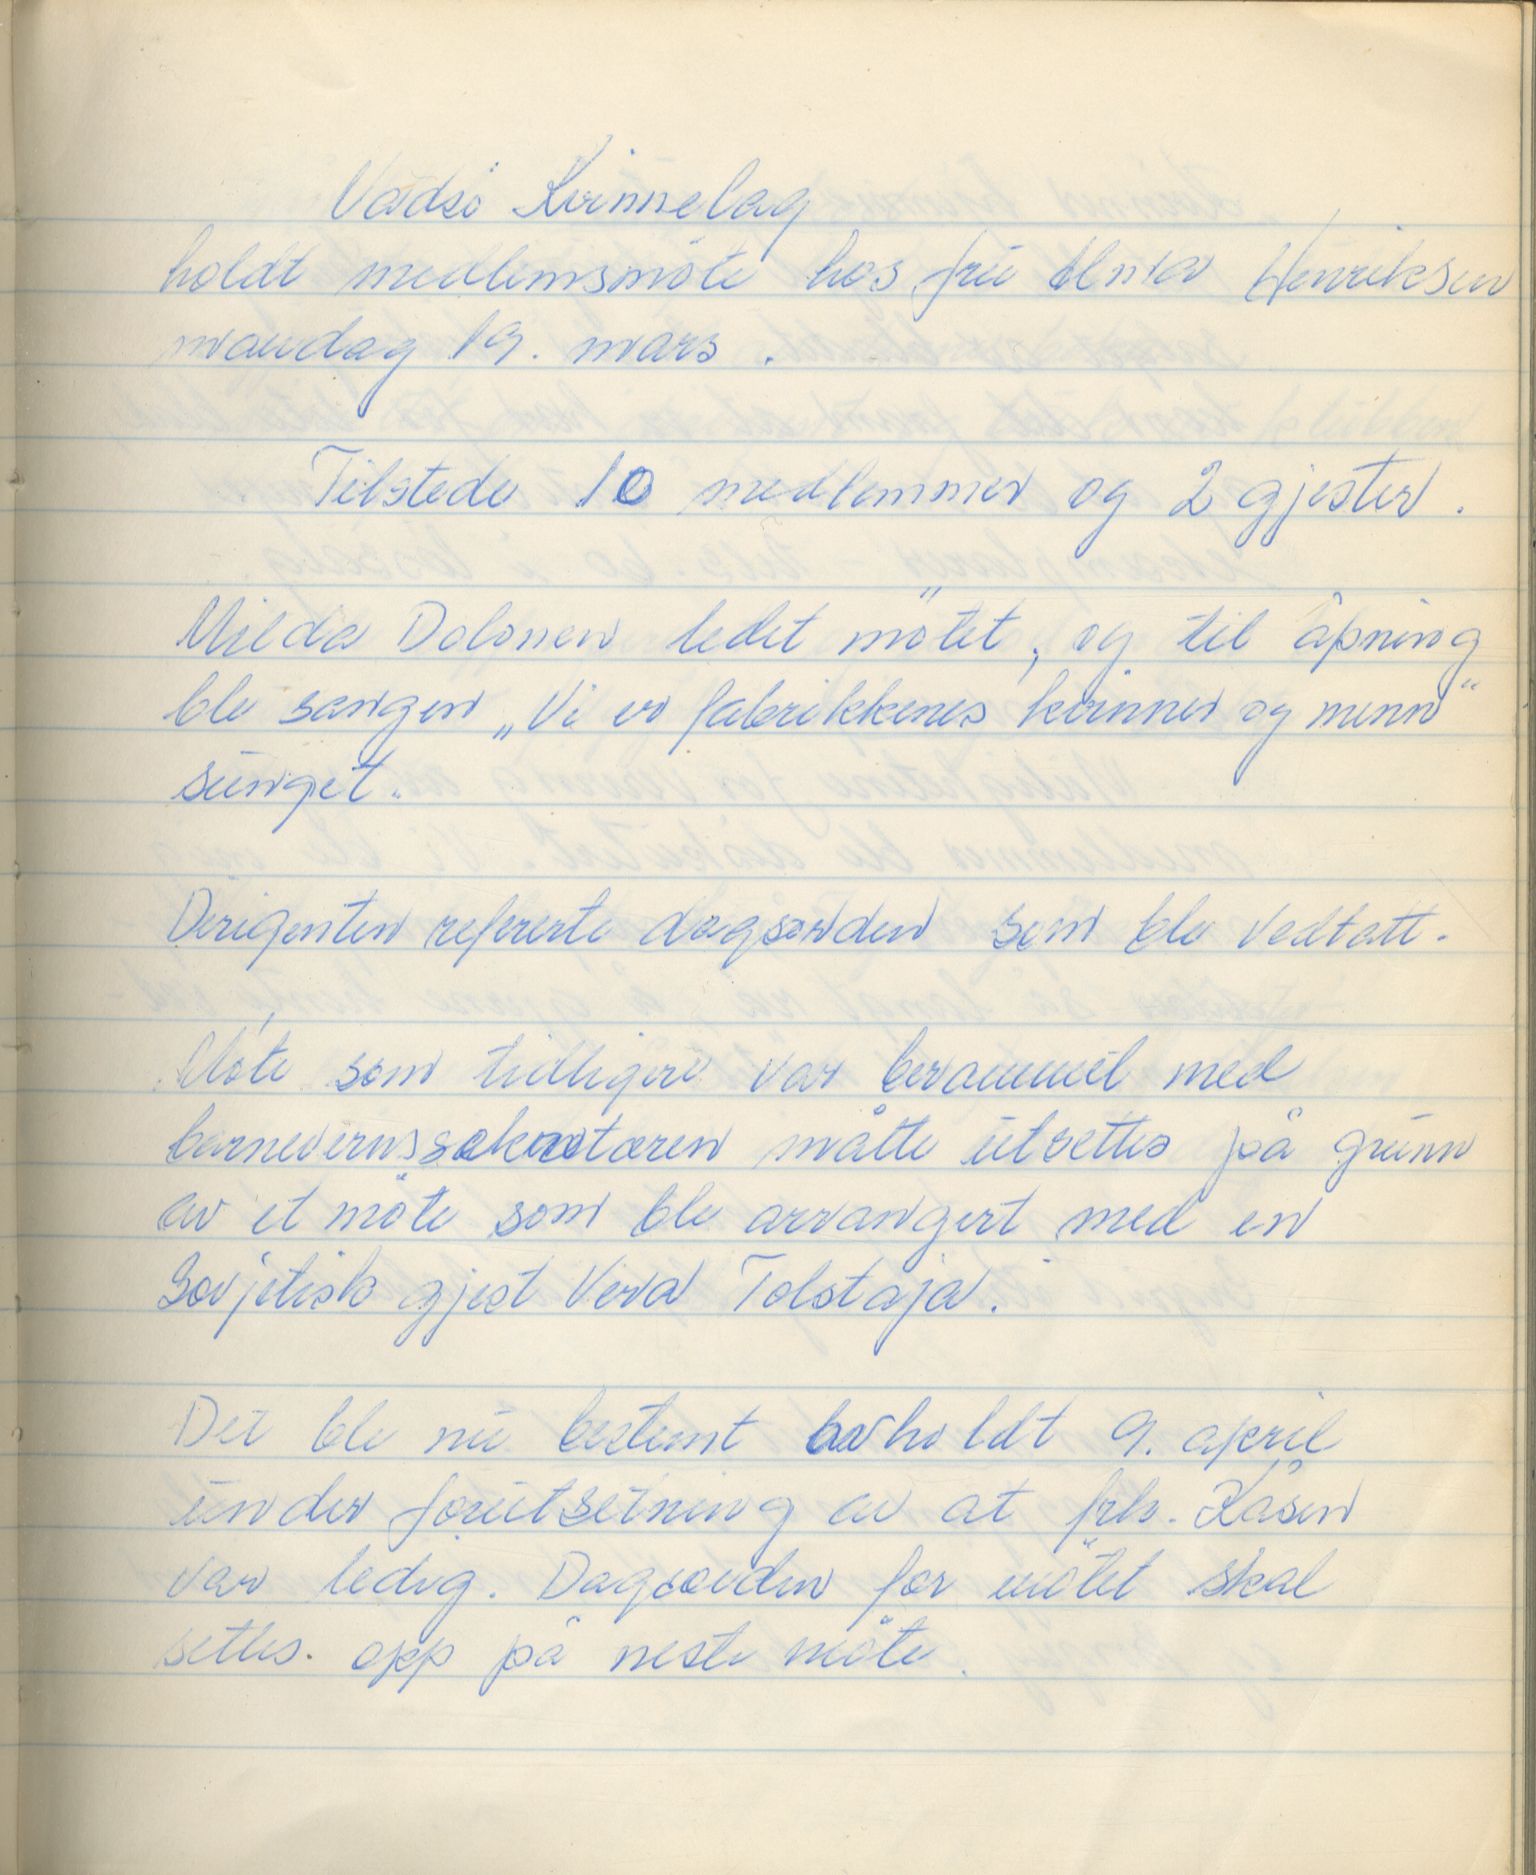 Vadsö Kvinnelag
holdt medlemsmöte hos fru Alma Henriksen
mandag 19. mars.
Tilstede 10 medlemmer og 2 gjester.
Milda Dolonen ledet mötet, og til åpning
ble sangen „Vi er fabrikkenes kvinner og menn"
sunget.
Dirigenten refererte dagsorden som ble vedtatt.
Möte som tidligere var berammet med
barnevernssekretæren måtte utsettes på grunn
av et möte som ble arrangert med en
Sovjetisk gjest Vera Tolstaja.
Det ble nu bestemt avholdt 9. april
under forutsetning av at frk. Kåsen
var ledig. Dagsorden for mötet skal
settes opp på neste möte.